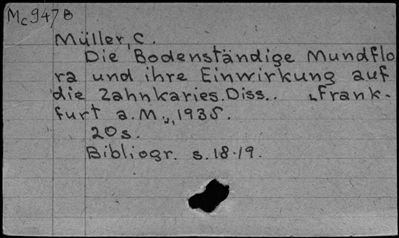 Mc947B
Müller, C.
Die Bodenständige Mundflo
ra und ihre Einwirkung auf
die Zahnkaries. Diss.. Frank-
furt a.M., 1935.
20s.
Bibliogr. s.18-19.